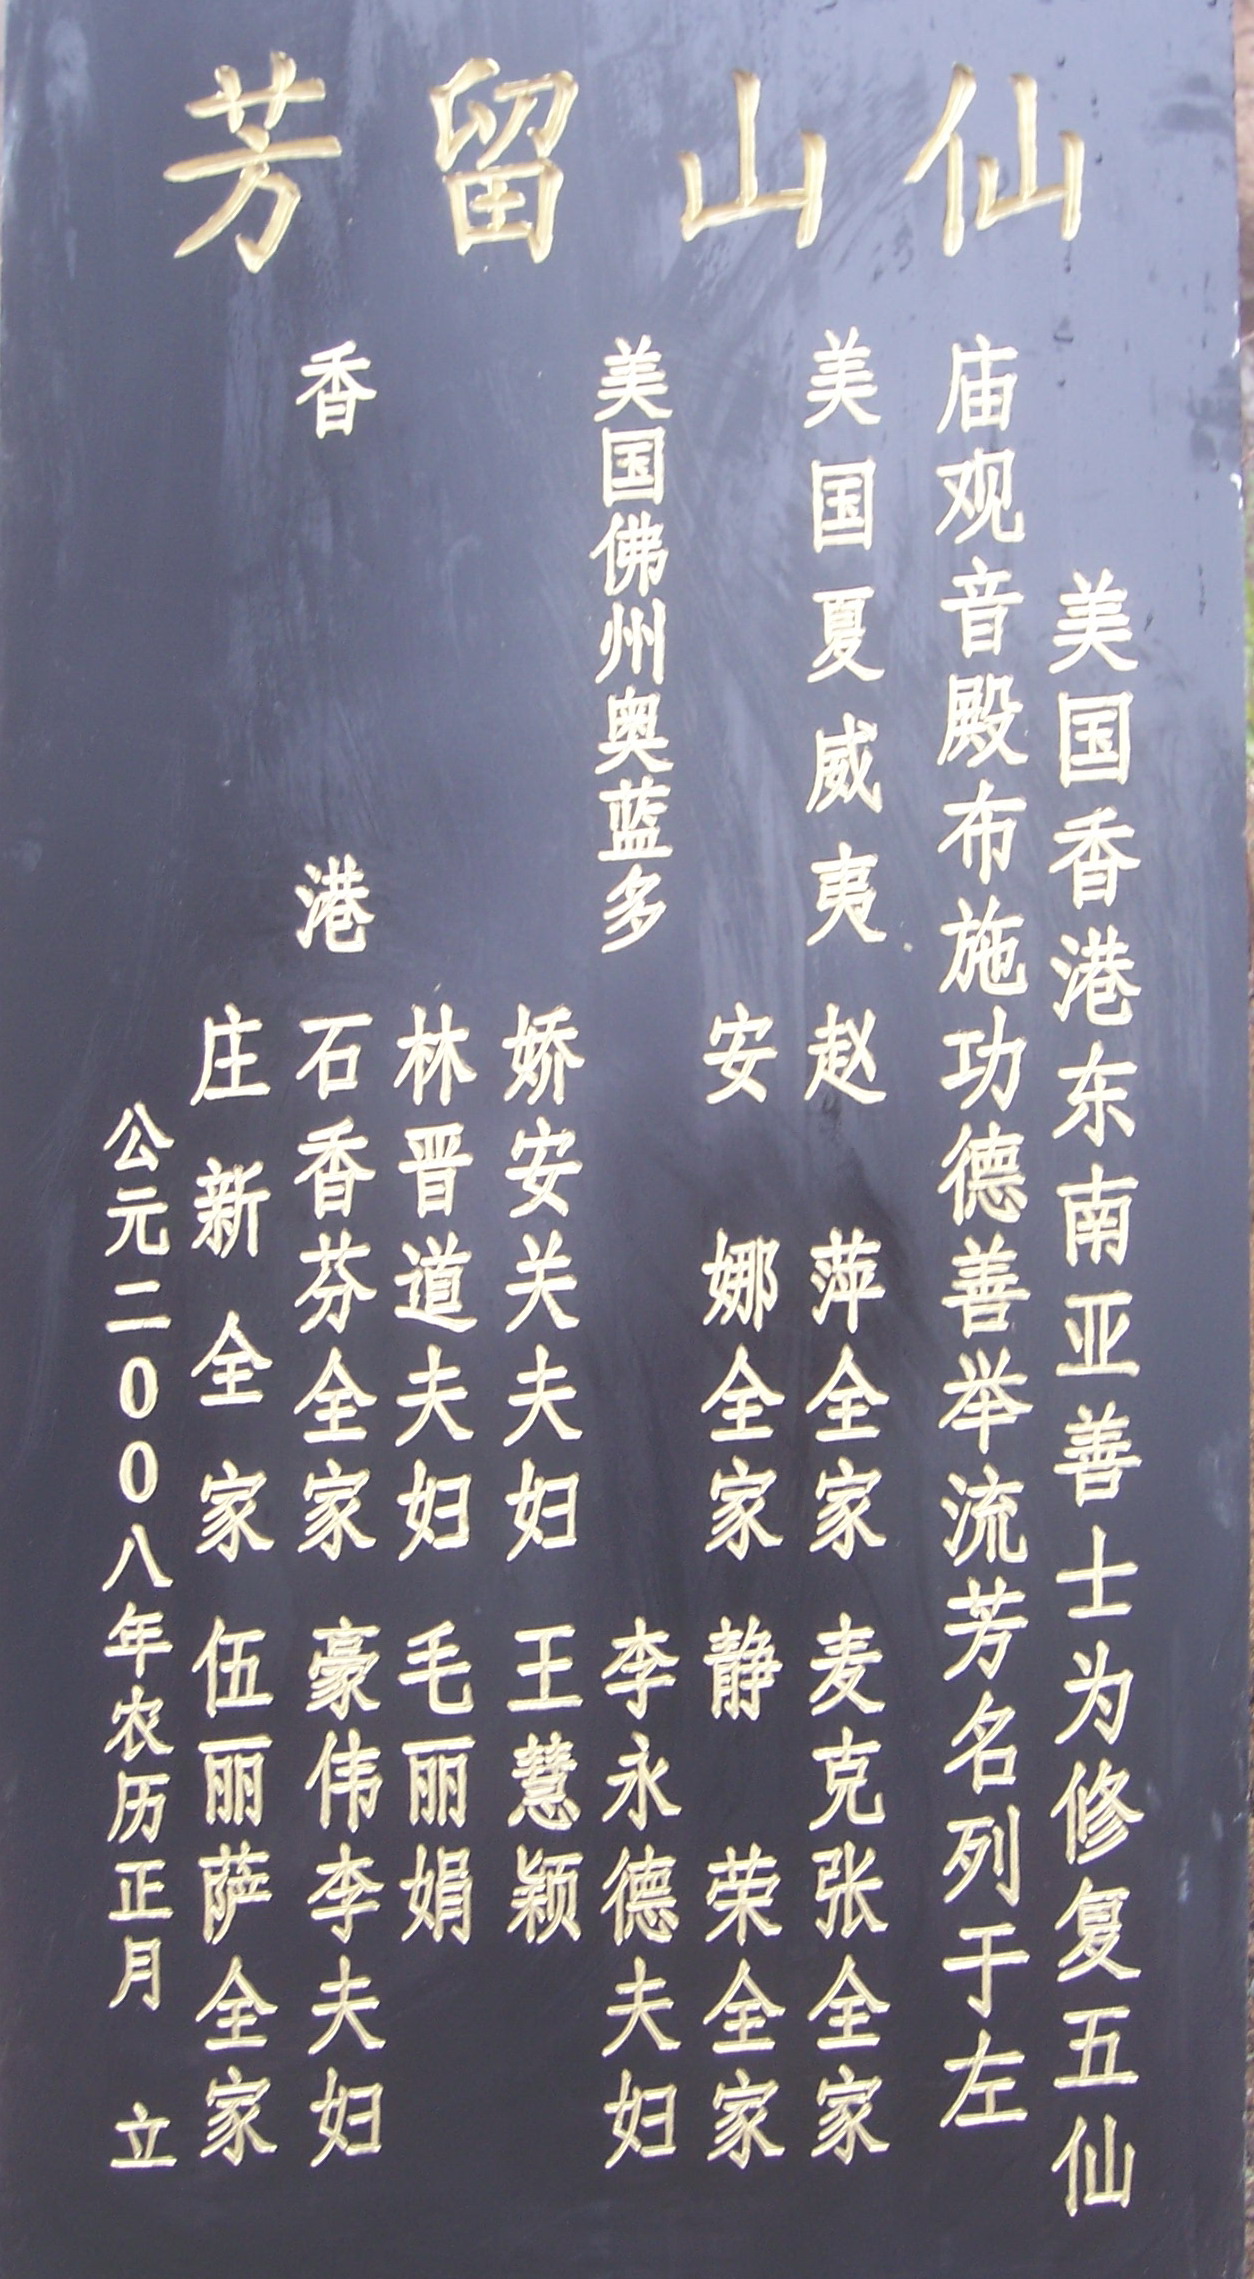 仙山留芳
美国香港东南亚善士为修复五仙
庙观音殿布施功德善举流芳名列于左
美国夏威夷 赵萍全家 麦克张全家
安娜全家 静荣全家
美国佛州奥蓝多 李永德夫妇
娇安关夫妇 王慧颖
林晋道夫妇 毛丽娟
香港 石香芬全家 豪伟李夫妇
庄新全家 伍丽萨全家
公元二00八年农历正月 立